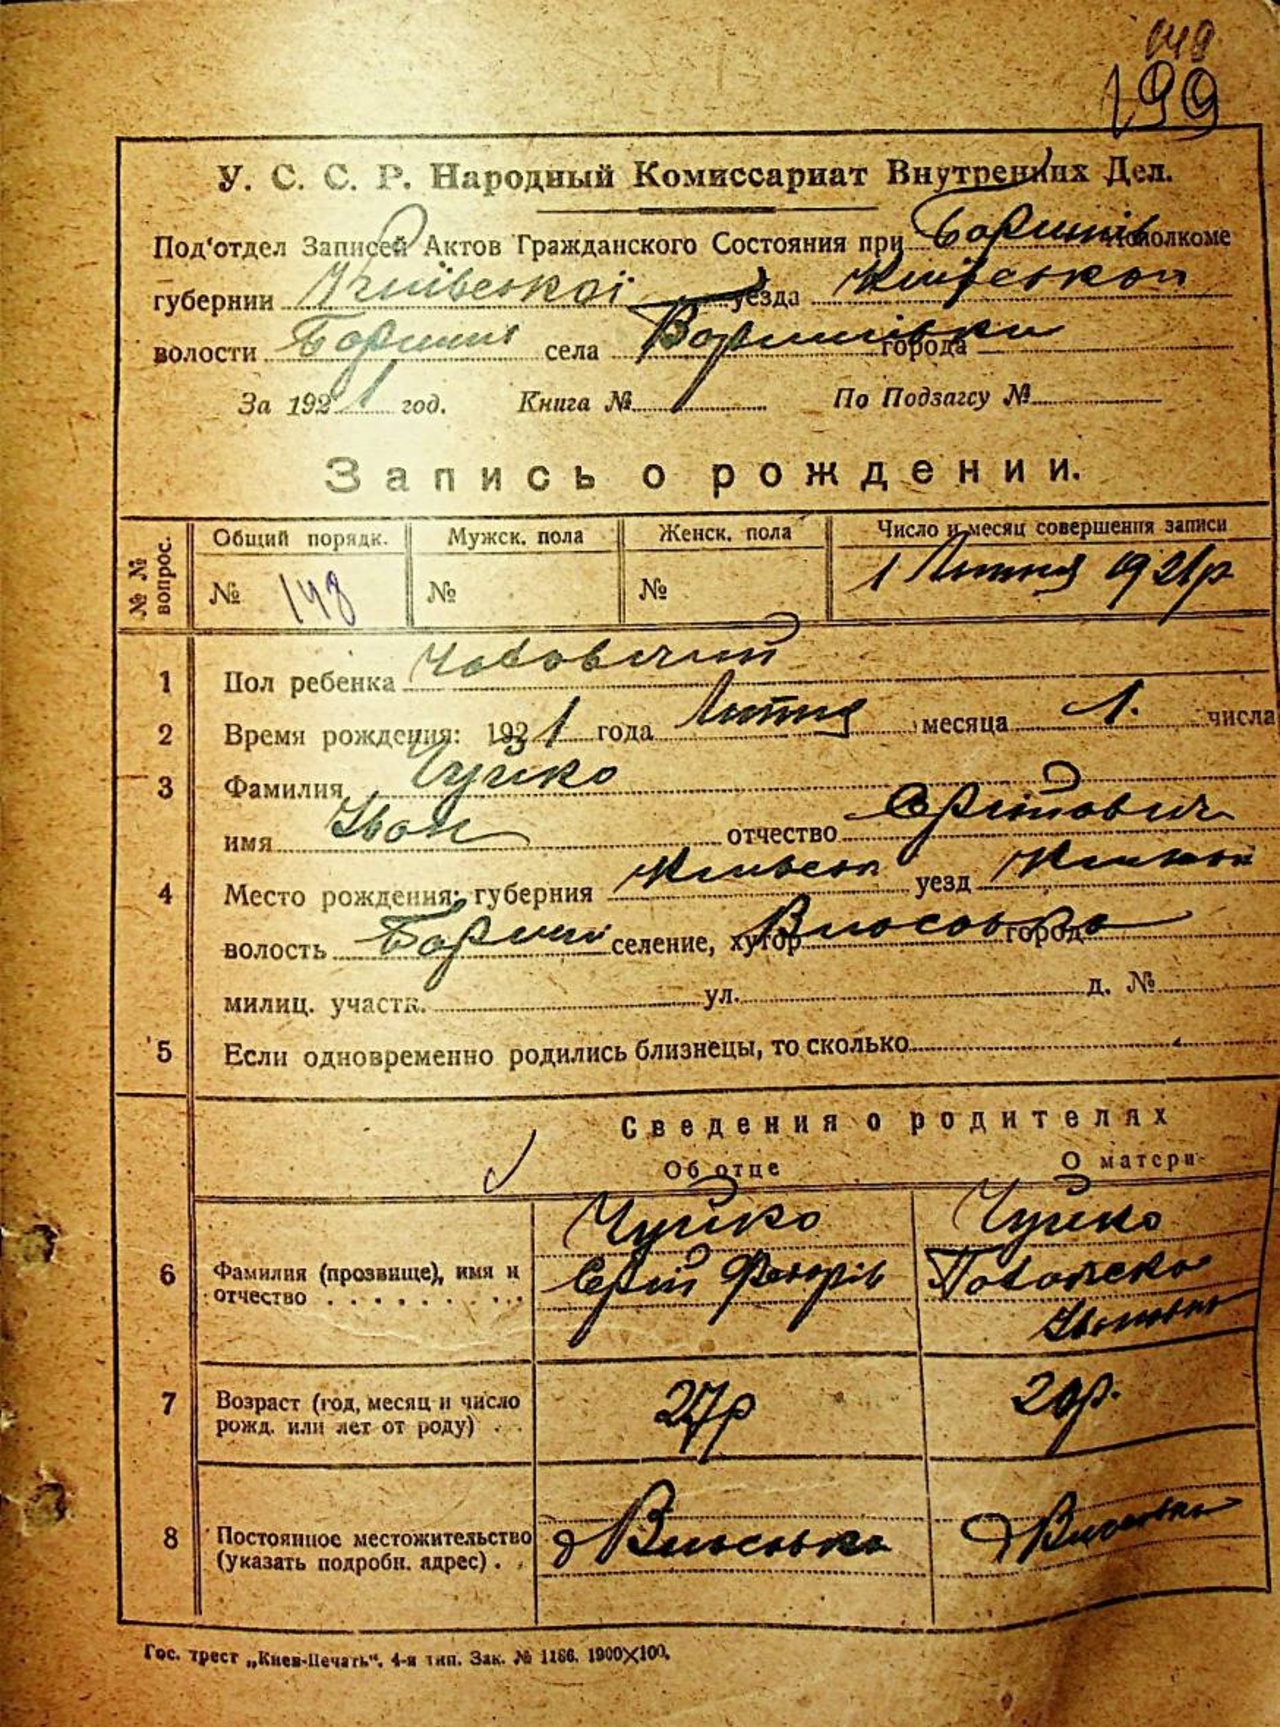 148
199
У. С. С. Р. Народный Комиссариат Внутренних Дел.
Под'отдел Записей Актов Гражданского Состояния при исполкоме
губернии Київської уезда Київської
волости села города
За 1921 год. Книга № По Подзагсу №
Запись о рождении.
№№ вопрос. Общий порядк. Мужск. пола Женск. пола Число и месяц совершения записи
№ 148 № № 1 Липня 1921р
1 Пол ребенка Чоловічий
2 Время рождения: 1921 года Липня месяца 1. числа
3 Фамилия Чуйко
имя Іван отчество Сергійович
4 Место рождения: губерния Київськ уезд
волость селение, хутор город
милиц. участк. ул. д. №
5 Если одновременно родились близнецы, то сколько
Сведения о родителях
Об отце О матери
6 Фамилия (прозвище), имя и отчество Чуйко Чуйко
Сергій
Івановна
7 Возраст (год, месяц и число рожд. или лет от роду) 27р 20р.
8 Постоянное местожительство (указать подробн. адрес)
Гос. трест „Киев-Печать“. 4-я тип. Зак. № 1186. 1900×100.